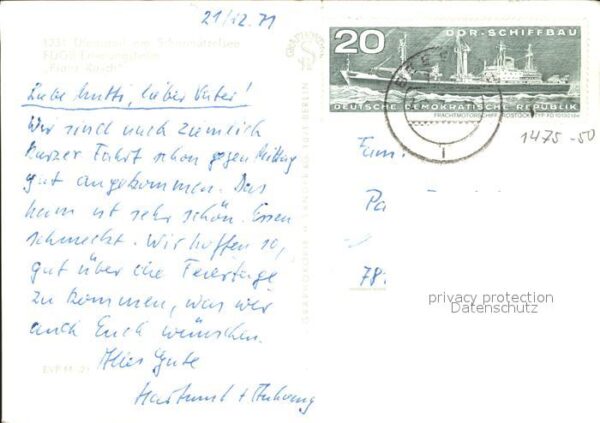 21/12.71
Liebe Mutti, lieber Vater!
Wir sind nach ziemlich
kurzer Fahrt schon gegen Mittag
gut angekommen. Das
heim ist sehr schön. Essen
schmeckt. Wir hoffen so,
gut über die Feiertage
zu kommen, was wir
auch Euch wünschen.
Alles Gute
Hartmut +
EVP M
20 DDR-SCHIFFBAU
DEUTSCHE DEMOKRATISCHE REPUBLIK
FRACHTMOTORSCHIFF ROSTOCK
1475-50
Fam.
Pa
78.
privacy protection
Datenschutz